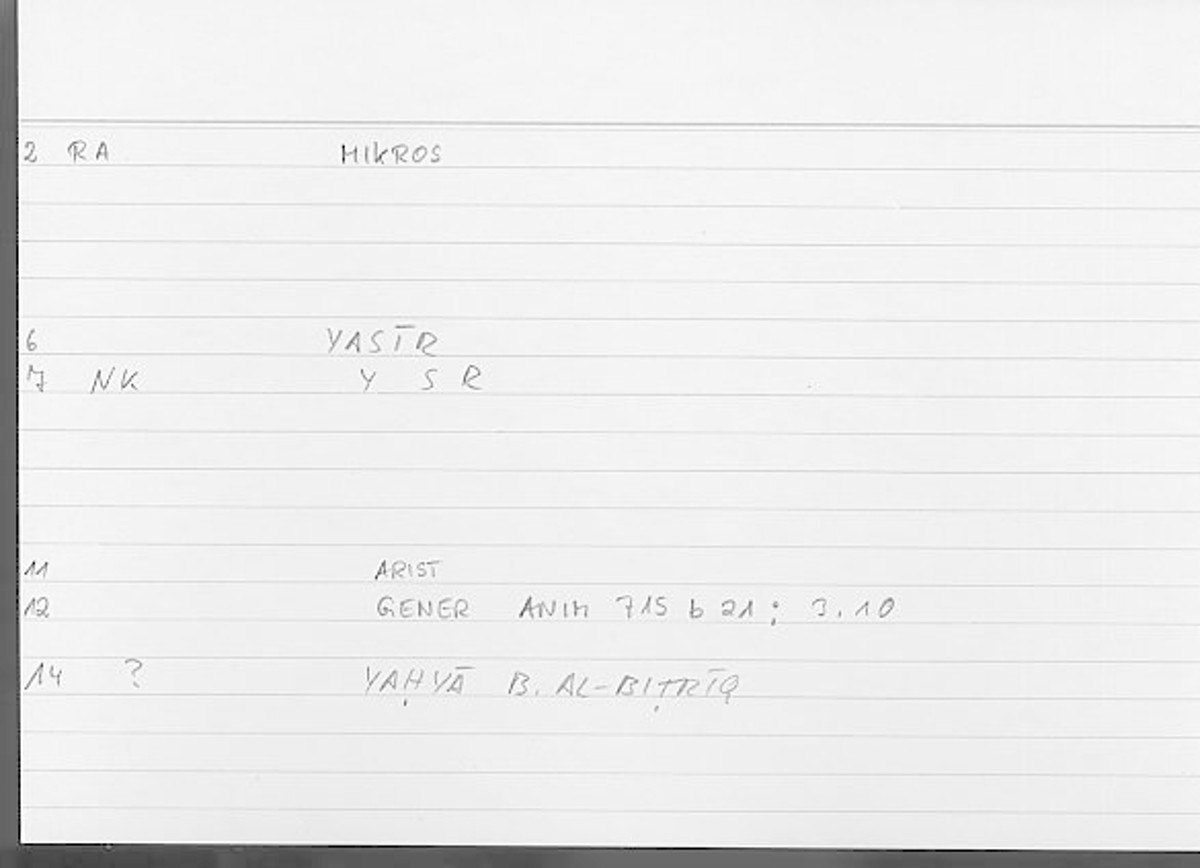 2 RA MIKROS
6 YASĪR
7 NK Y S R
11 ARIST
12 GENER ANIM 715 b 21 ; 3.10
14 ? YAḤYĀ B. AL-BIṬRĪQ